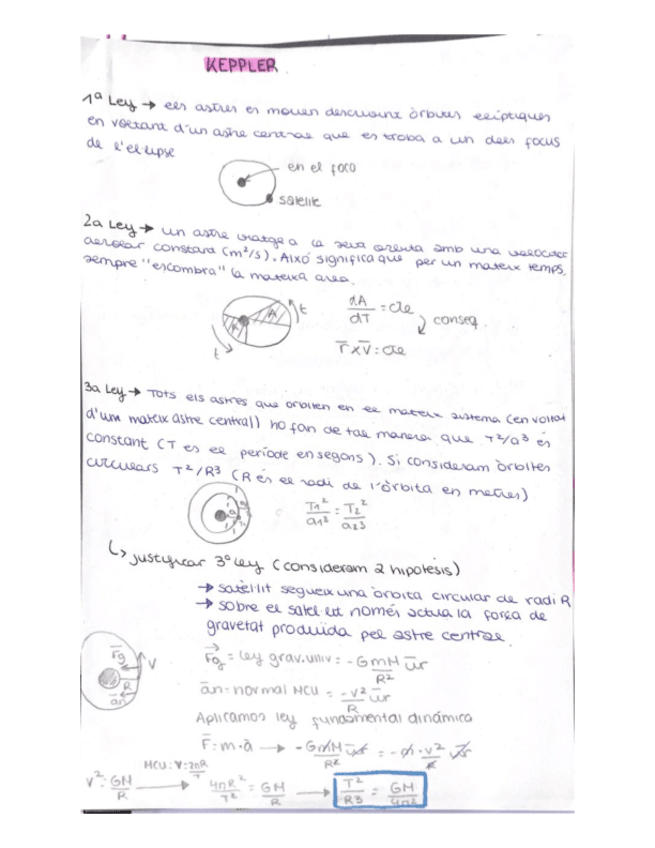 KEPPLER
1ª Ley → els astres es mouen descrivint òrbites el·líptiques
en voltant d'un astre central que es troba a un dels focus
de l'el·lipse
en el foco
satelite
2a Ley → un astre viatge a la seva òrbita amb una velocitat
aerolar constant (m²/s). Això significa que per un mateix temps,
sempre "escombra" la mateixa area.
A
A
t
t
dA/dT = cte
conseq.
r̄ x v̄ = cte
3a Ley → Tots els astres que orbiten en el mateix sistema (en voltat
d'un mateix astre central) ho fan de tal manera que T²/a³ és
constant (T es el període en segons). Si consideram òrbites
circulars T²/R³ (R és el radi de l'òrbita en metres)
T₁²/a₁³ = T₂²/a₂3
↳ justificar 3ª ley (consideram 2 hipotèsis)
→ satèl·lit segueix una òrbita circular de radi R
→ sobre el satèl·lit només actua la força de
gravetat produïda pel astre central.
Fg = ley grav.univ = - GmM/R² ūr
Fg
V
R
an
ān = normal MCU = -v²/R ūr
Aplicamos ley fundamental dinámica
F̄ = m·ā → - GmM/R² ūr = - m · v²/R ūr
V² = GM/R
MCU: V = 2πR/T
→ 4πR²/T² = GM/R → T²/R3 = GM/4π²